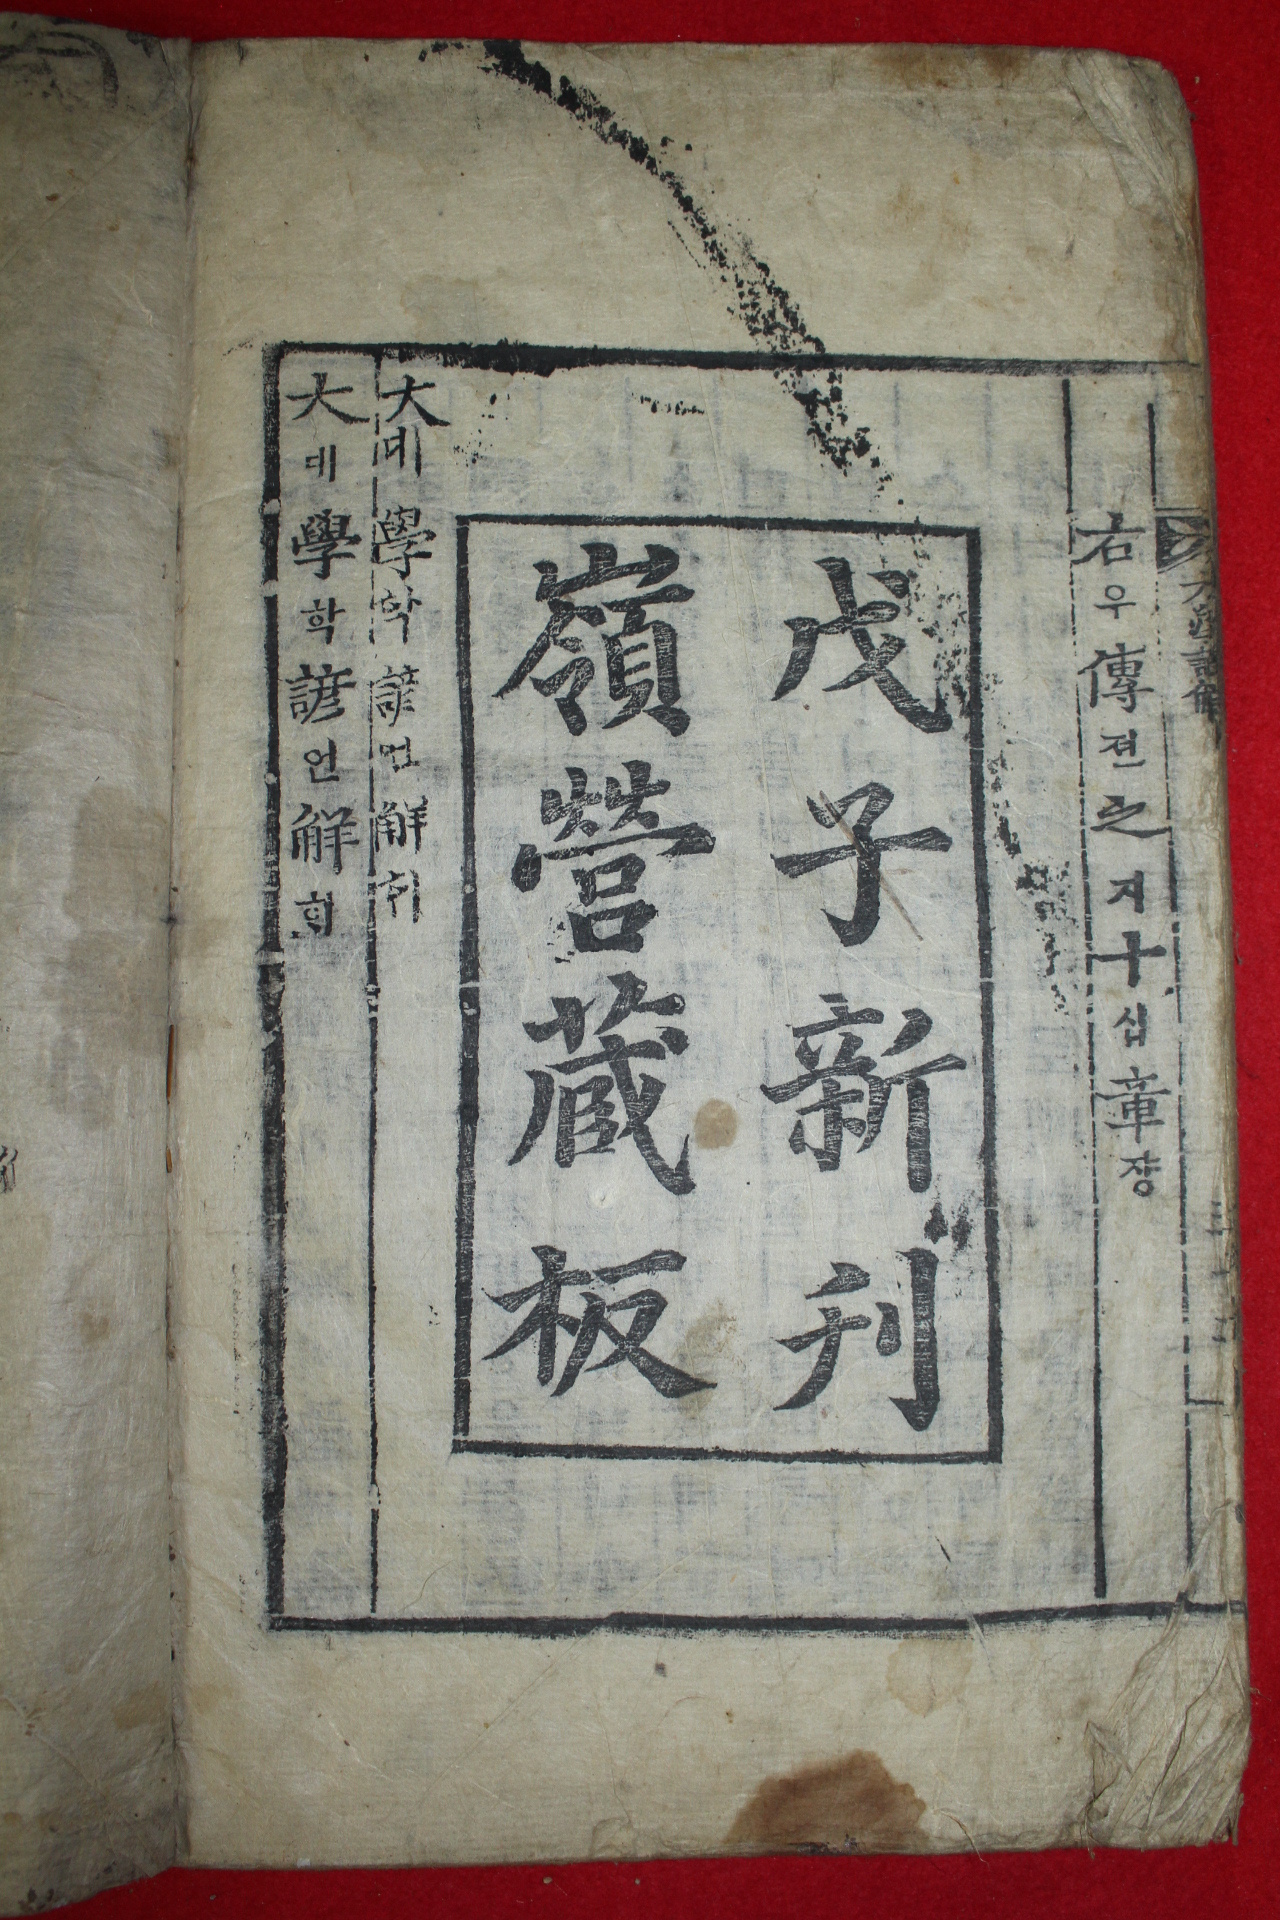 右우傳젼之지十십章쟝
戊子新刊
嶺營藏板
大대學학諺언解히
大대學학諺언解ᄒᆡ